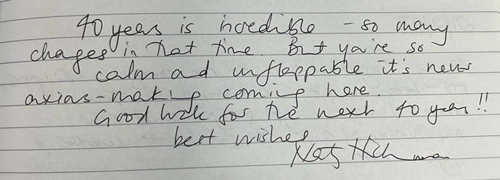 40 years is incredible - so many
chages in that time. But you're so
calm ad unflappable it's never
axias-making coming here.
Good luck for the next 40 years!!
best wishes